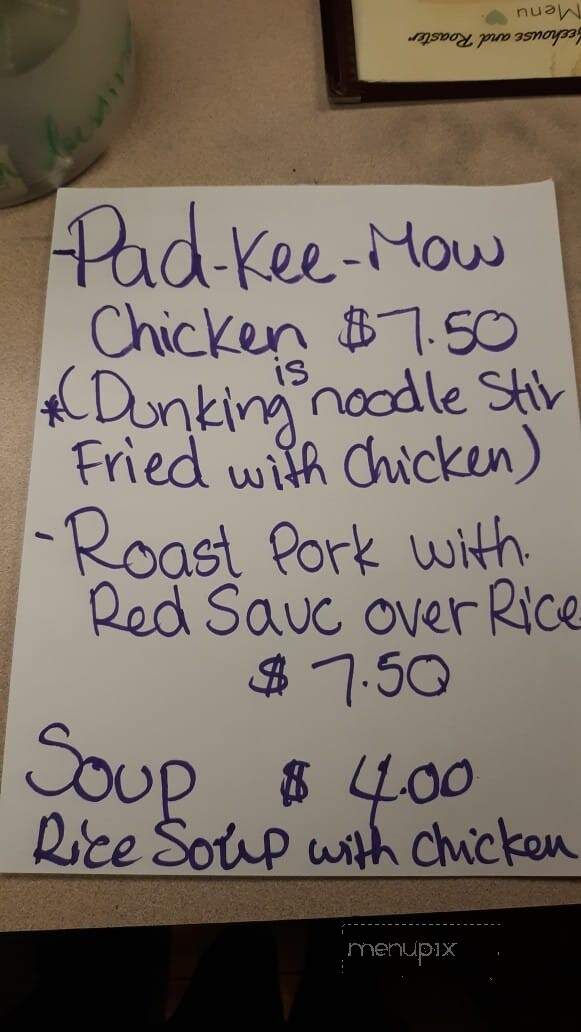 eehouse and Roaster
Menu
-Pad-Kee-Mow
Chicken $7.50
*(Dunking is noodle Stir
Fried with Chicken)
-Roast Pork with.
Red Sauc over Rice
$ 7.50
Soup $ 4.00
Rice Soup with Chicken
menupix